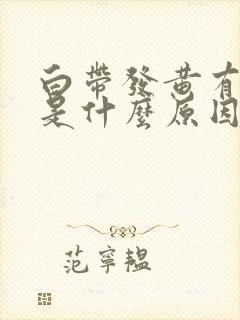 白帶發黃有
是什麼原因
范寧韞